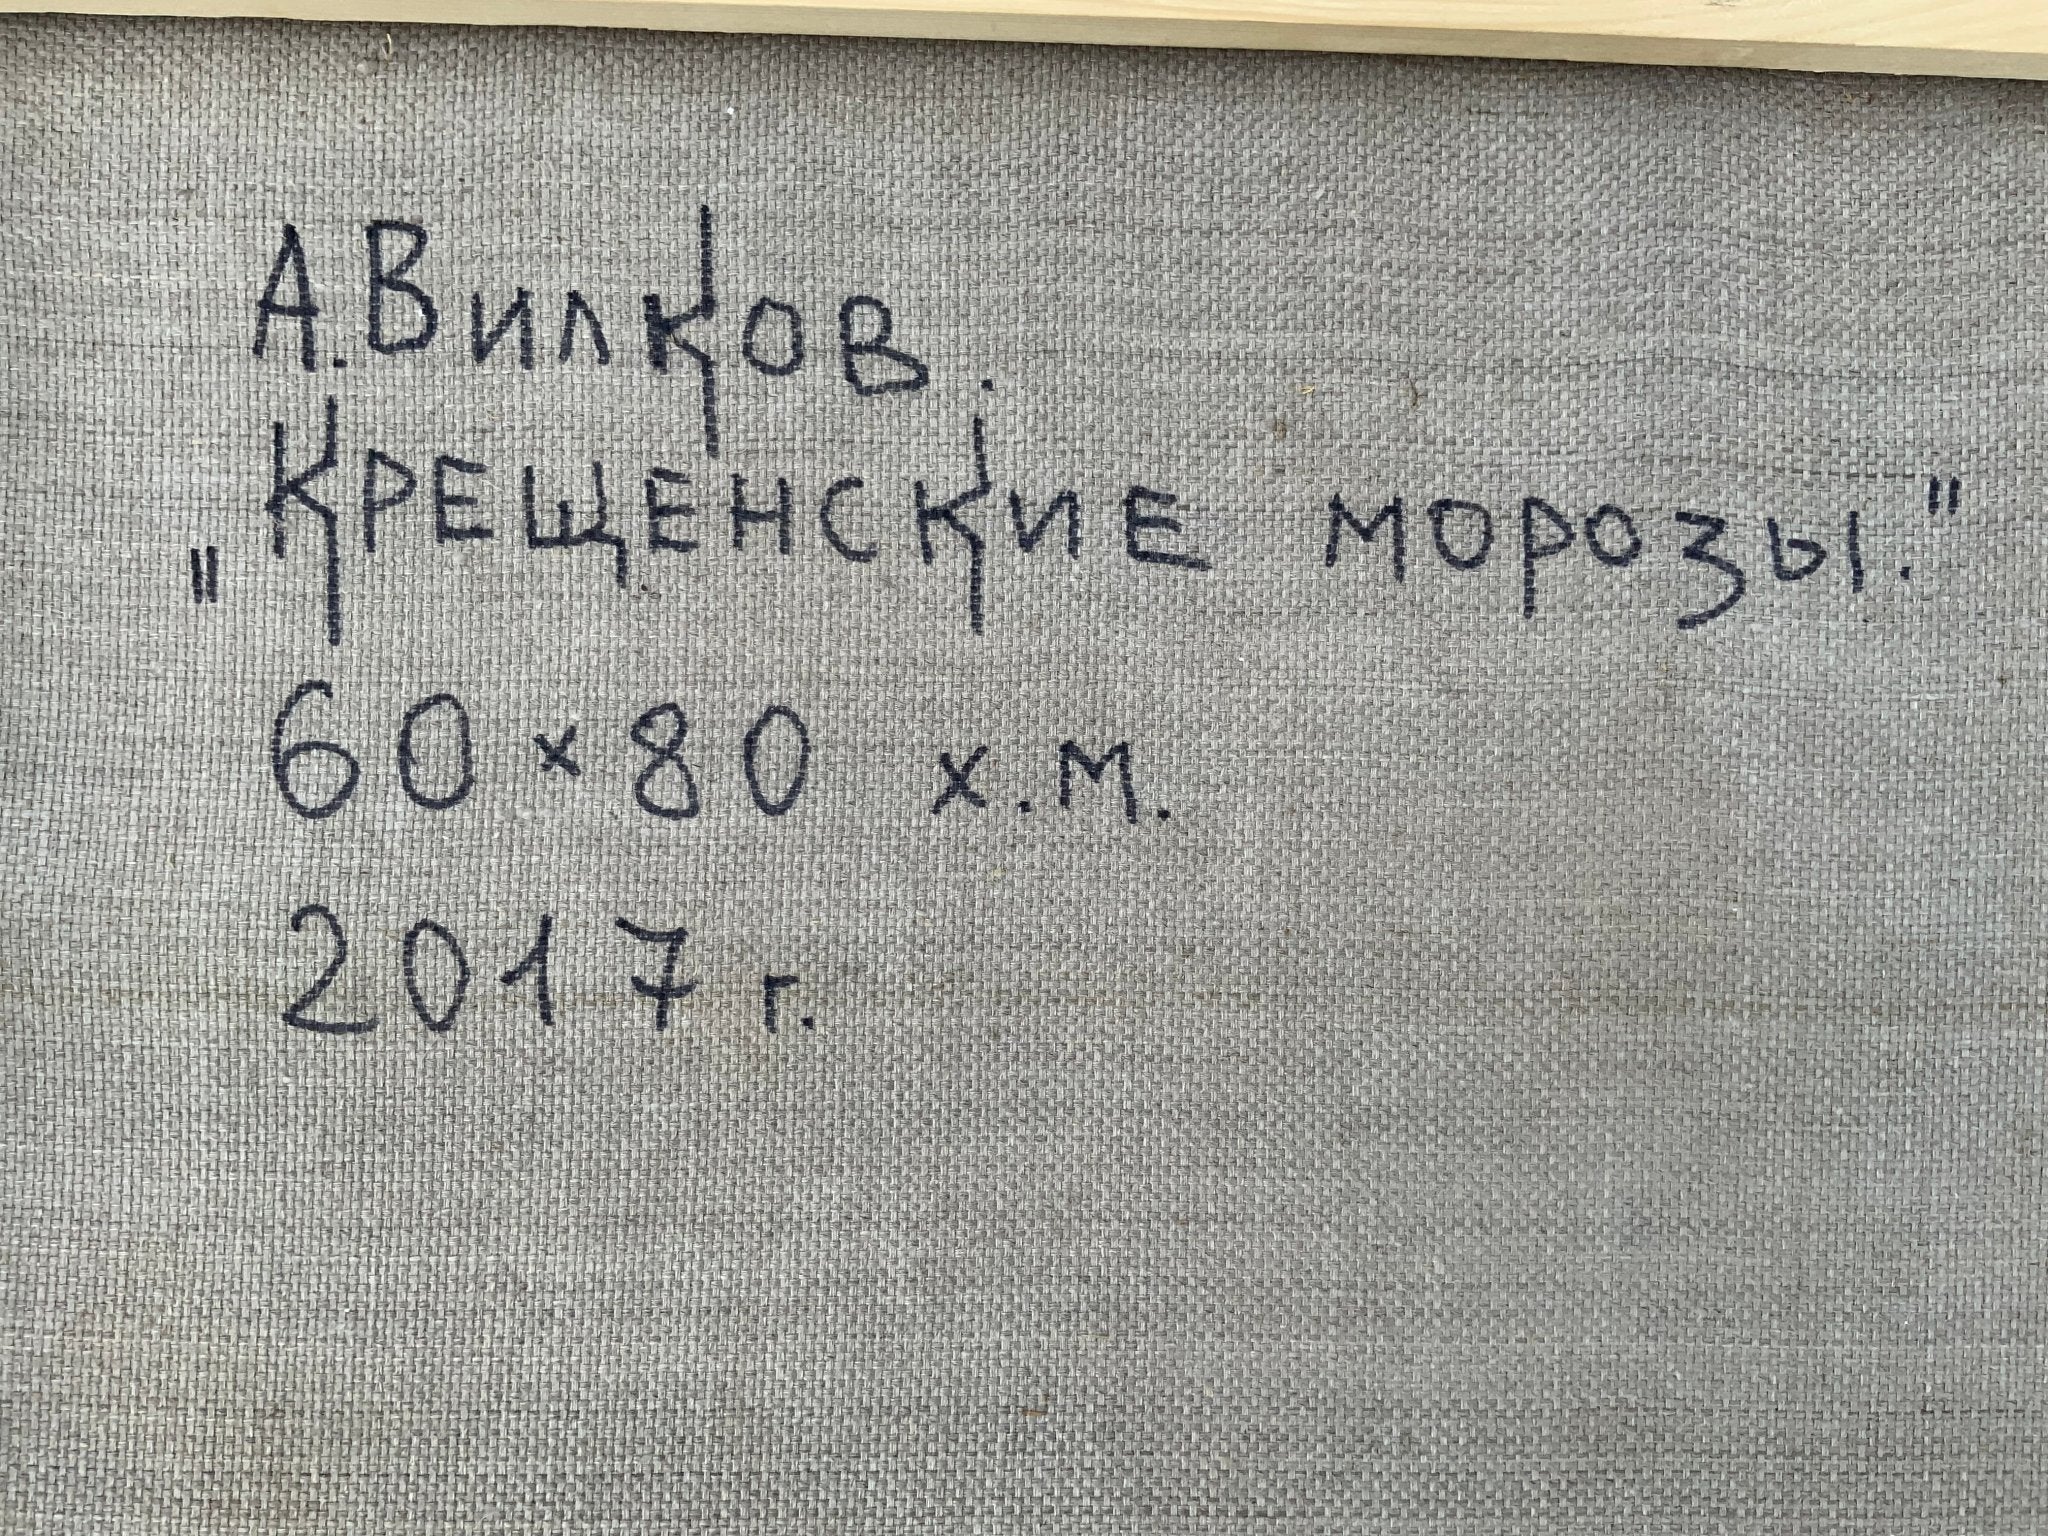 А. Вилков.
„Крещенские морозы."
60×80 х.м.
2017 г.